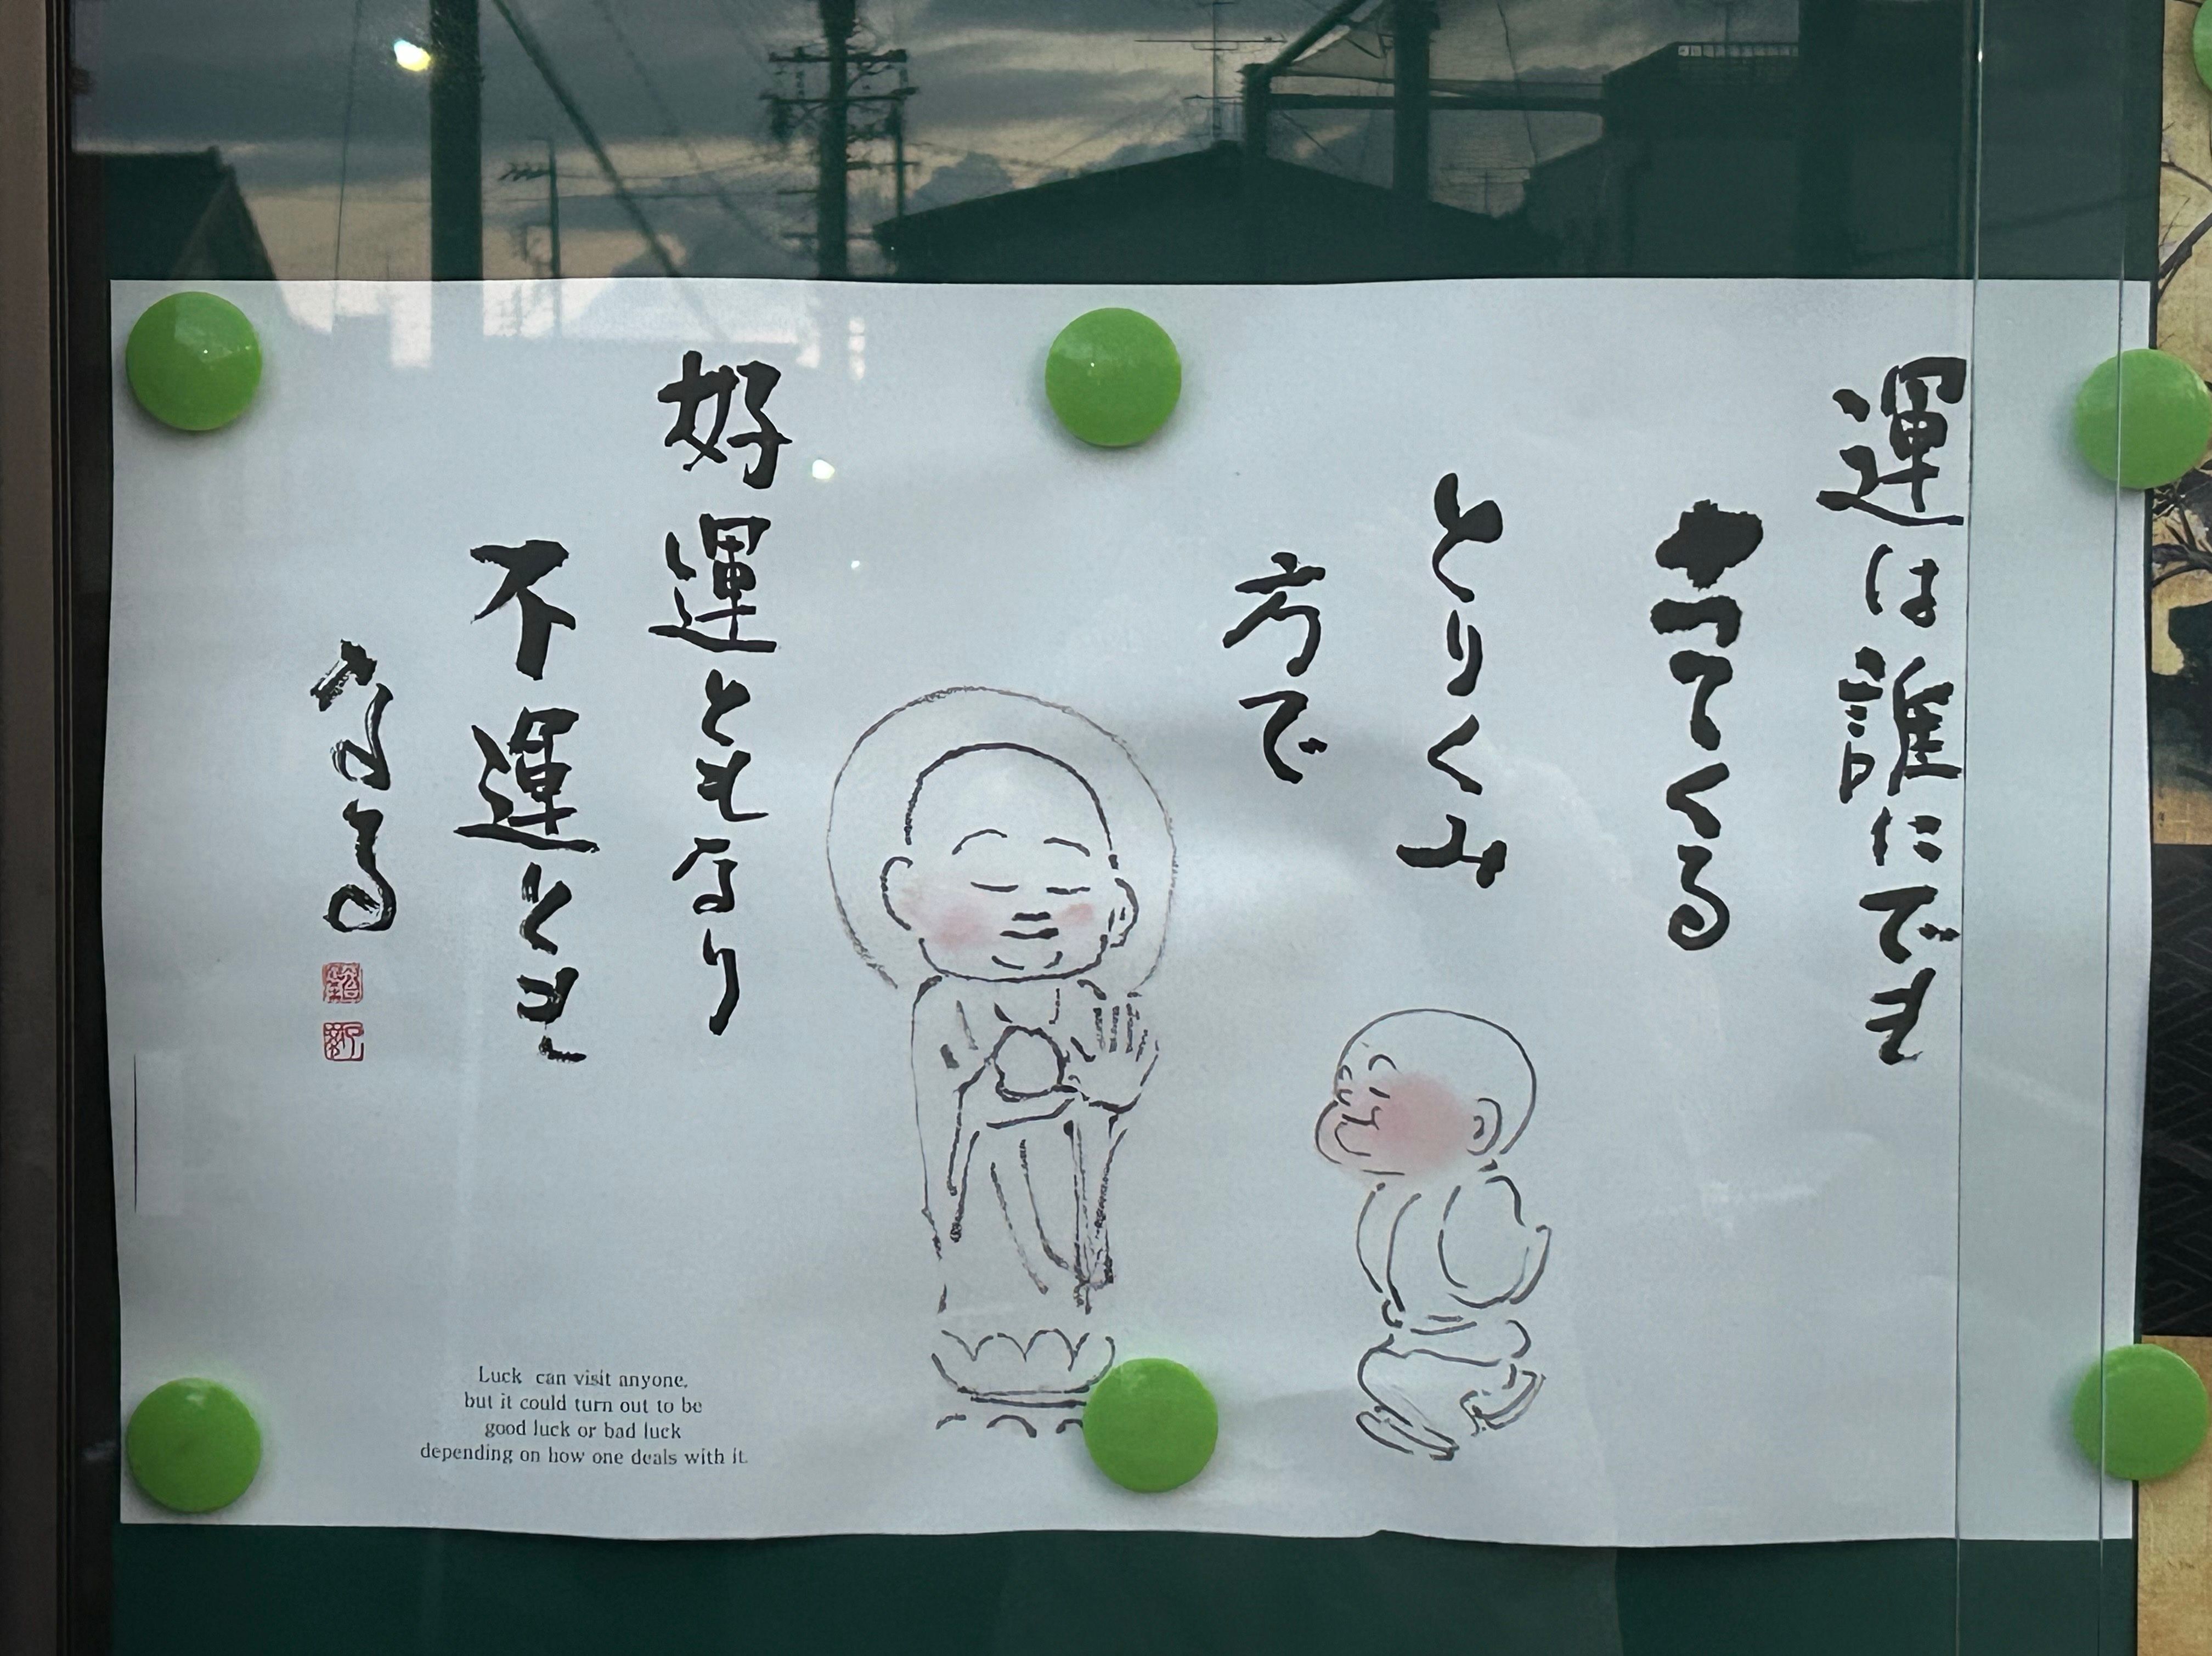 運は誰にでも
やってくる
とりくみ
方で
好運ともなり
不運とも
なる
Luck can visit anyone,
but it could turn out to be
good luck or bad luck
depending on how one deals with it.